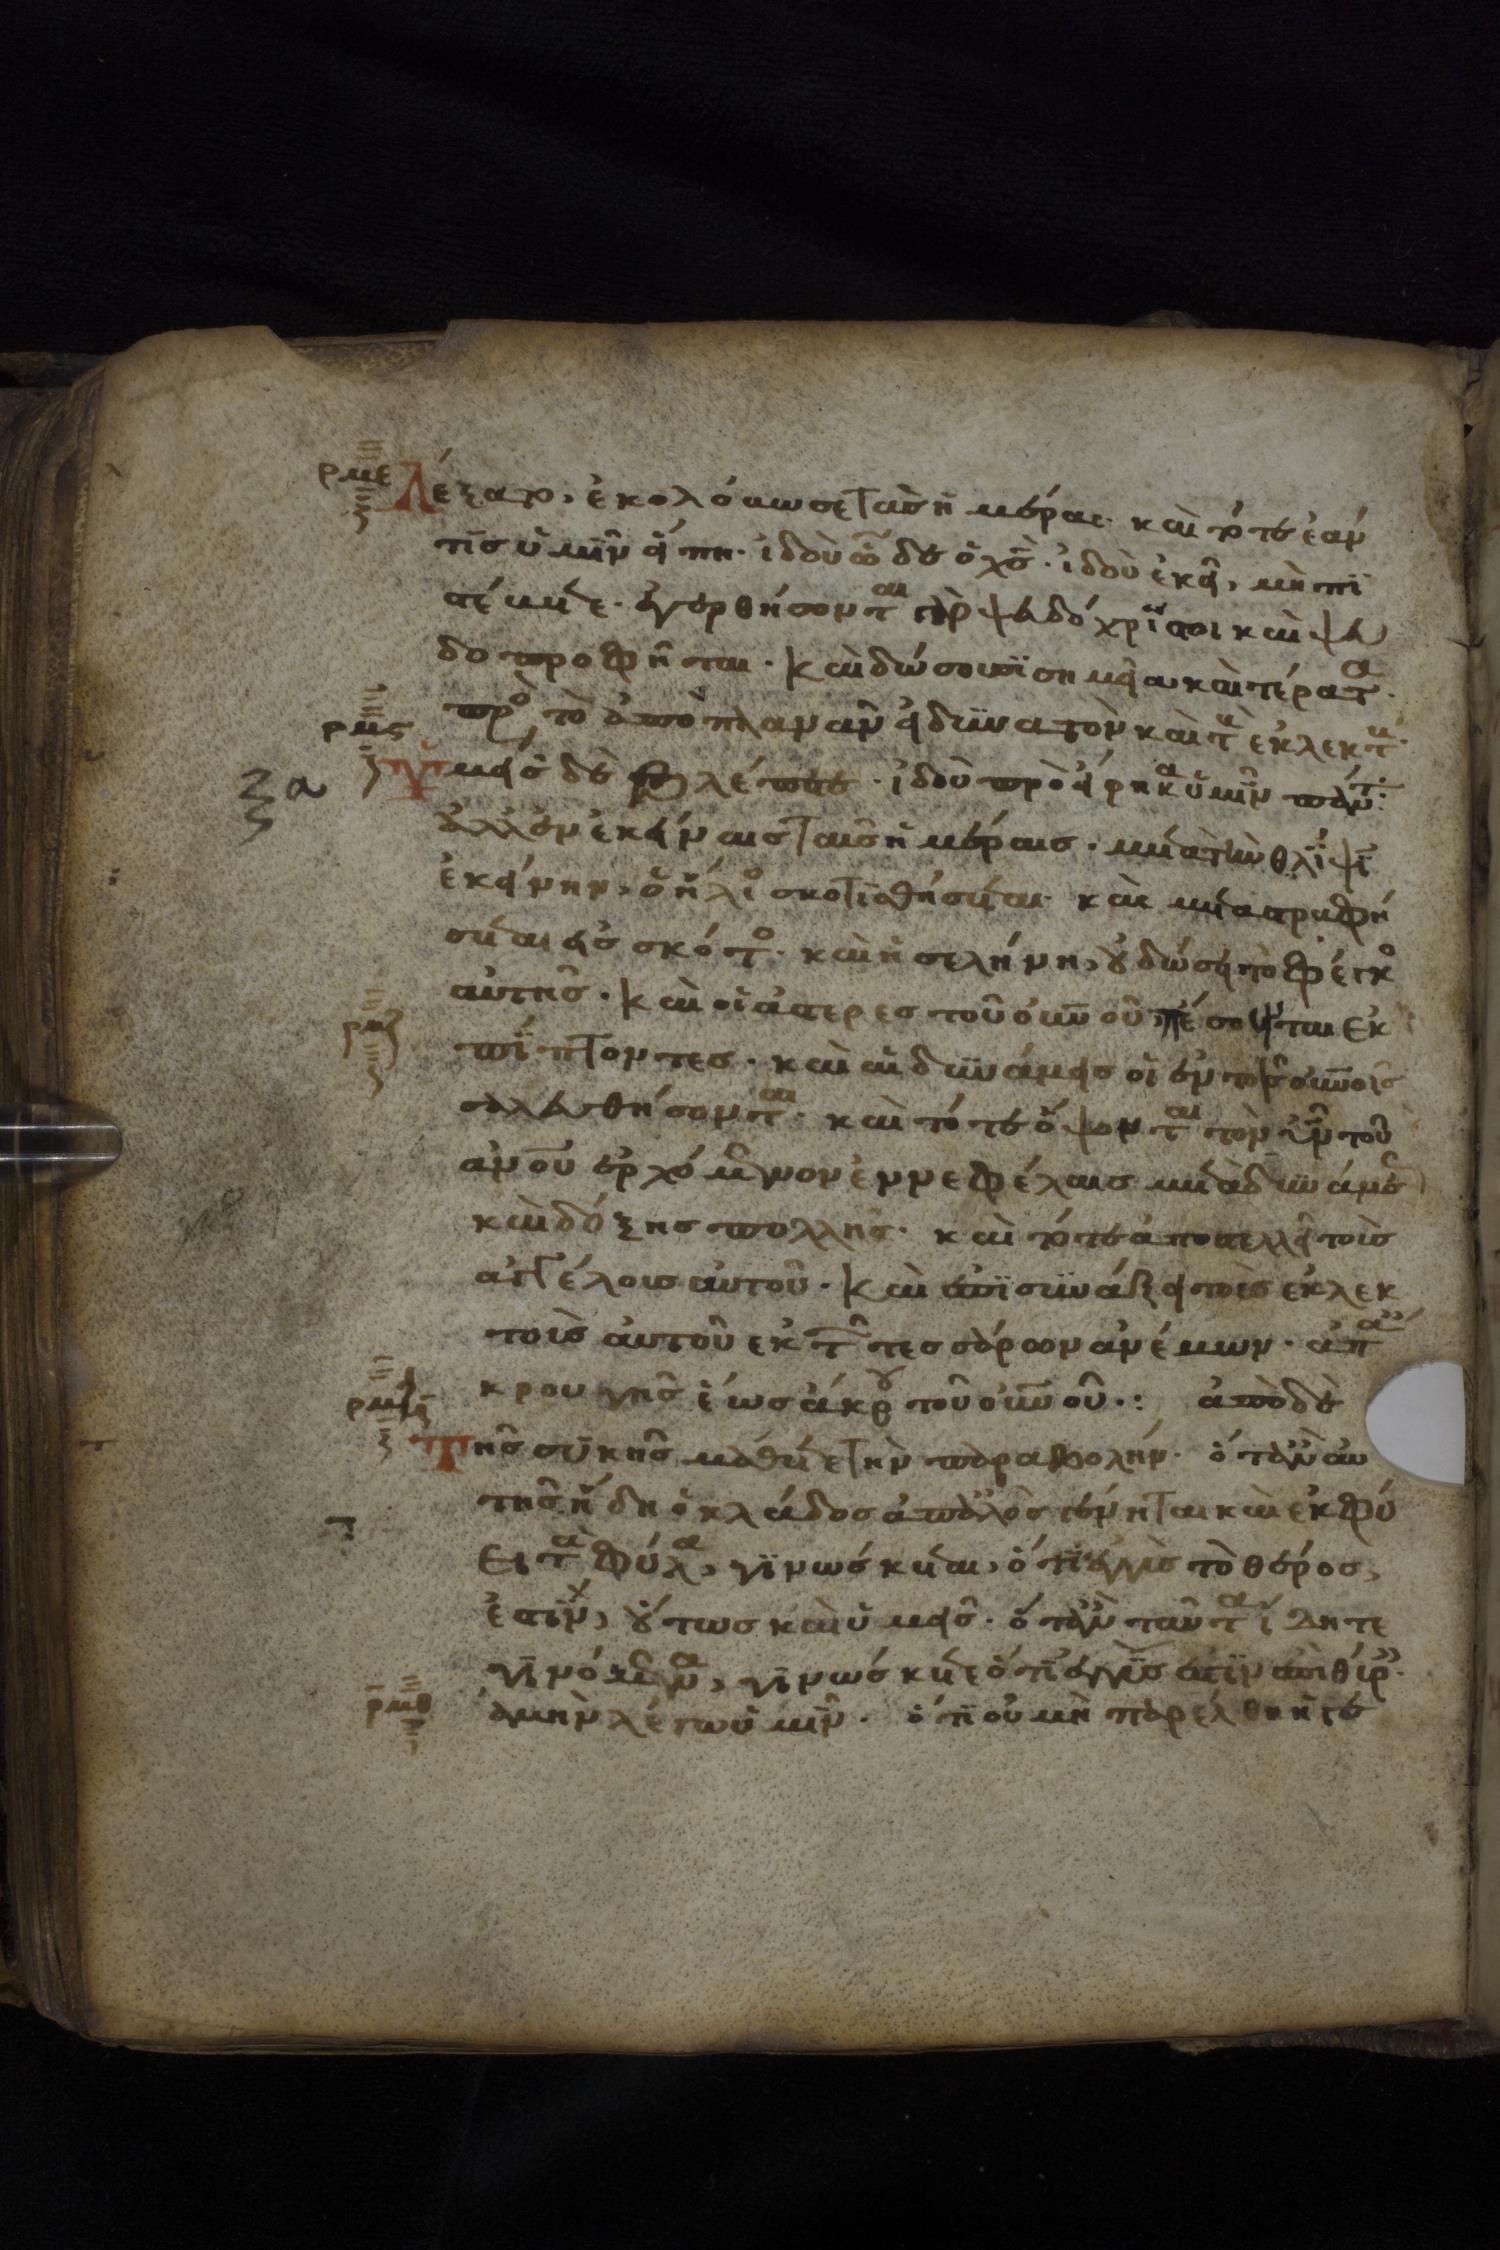 ρμε Λέξατο, ἐκολόβωσε τὰς ἡμέρας· καὶ τότε ἐάν
τις ὑμῖν εἴπη· ἰδοὺ ὧδε ὁ χς̄· ἰδοὺ ἐκεῖ, μὴ πι
στεύετε· ἐγερθήσονται γὰρ ψευδόχριστοι καὶ ψευ
δοπροφῆται· καὶ δώσουσι σημεῖα καὶ τέρατα·
ρμς πρὸς τὸ ἀποπλανᾶν εἰ δυνατὸν καὶ τοὺς ἐκλεκτούς·
ὑμεῖς δὲ βλέπετε· ἰδοὺ προείρηκα ὑμῖν πάντα:
ξα ἀλλ' ἐν ἐκείναις ταῖς ἡμέραις· μετὰ τὴν θλίψιν
ἐκείνην, ὁ ἥλιος σκοτισθήσεται· καὶ μεταστραφή
σεται εἰς σκότος· καὶ ἡ σελήνη, οὐ δώσει τὸ φέγγος
αὐτῆς· καὶ οἱ ἀστέρες τοῦ οὐνοῦ, ἔσονται ἐκ
ρμζ πίπτοντες· καὶ αἱ δυνάμεις οἱ ἐν τοῖς οὐνοῖς
σαλευθήσονται· καὶ τότε ὄψονται τὸν υἱὸν τοῦ
ἀνου ἐρχόμενον ἐν νεφέλαις μετὰ δυνάμεως
καὶ δόξης πολλῆς· καὶ τότε ἀποστελλεῖ τοὺς
ἀγγέλους αὐτοῦ· καὶ ἐπισυνάξει τοὺς ἐκλεκ
τοὺς αὐτοῦ ἐκ τῶν τεσσάρων ἀνέμων· ἀπ' ἄ
κρου γῆς ἕως ἄκρου τοῦ οὐνοῦ·: ἀπὸ δὲ
ρμη Τῆς συκῆς μάθετε τὴν παραβολήν· ὅταν αὐ
τῆς ἤδη ὁ κλάδος ἁπαλὸς γένηται καὶ ἐκφύ
ει τὰ φύλλα, γινώσκεται, ὅτι ἐγγὺς τὸ θέρος,
ἐστίν, οὕτως καὶ ὑμεῖς· ὅταν ταῦτα ἴδητε
γινόμενα, γινώσκετε ὅτι ἐγγύς ἐστιν ἐπὶ θύραις·
ρμθ ἀμὴν λέγω ὑμῖν· ὅτι οὐ μὴ παρέλθη ἡ γε